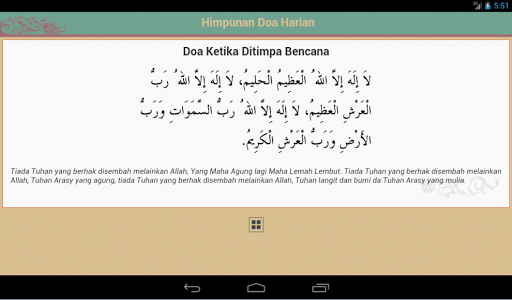 5:51
Himpunan Doa Harian
Doa Ketika Ditimpa Bencana
لاَ إِلَهَ إِلاَّ اللهُ الْعَظِيمُ الْحَلِيمُ، لاَ إِلَهَ إِلاَّ اللهُ رَبُّ
الْعَرْشِ الْعَظِيمُ، لاَ إِلَهَ إِلاَّ اللهُ رَبُّ السَّمَوَاتِ وَرَبُّ
الأَرْضِ وَرَبُّ الْعَرْشِ الْكَرِيمُ.
Tiada Tuhan yang berhak disembah melainkan Allah, Yang Maha Agung lagi Maha Lemah Lembut. Tiada Tuhan yang berhak disembah melainkan
Allah, Tuhan Arasy yang agung, tiada Tuhan yang berhak disembah melainkan Allah, Tuhan langit dan bumi da Tuhan Arasy yang mulia